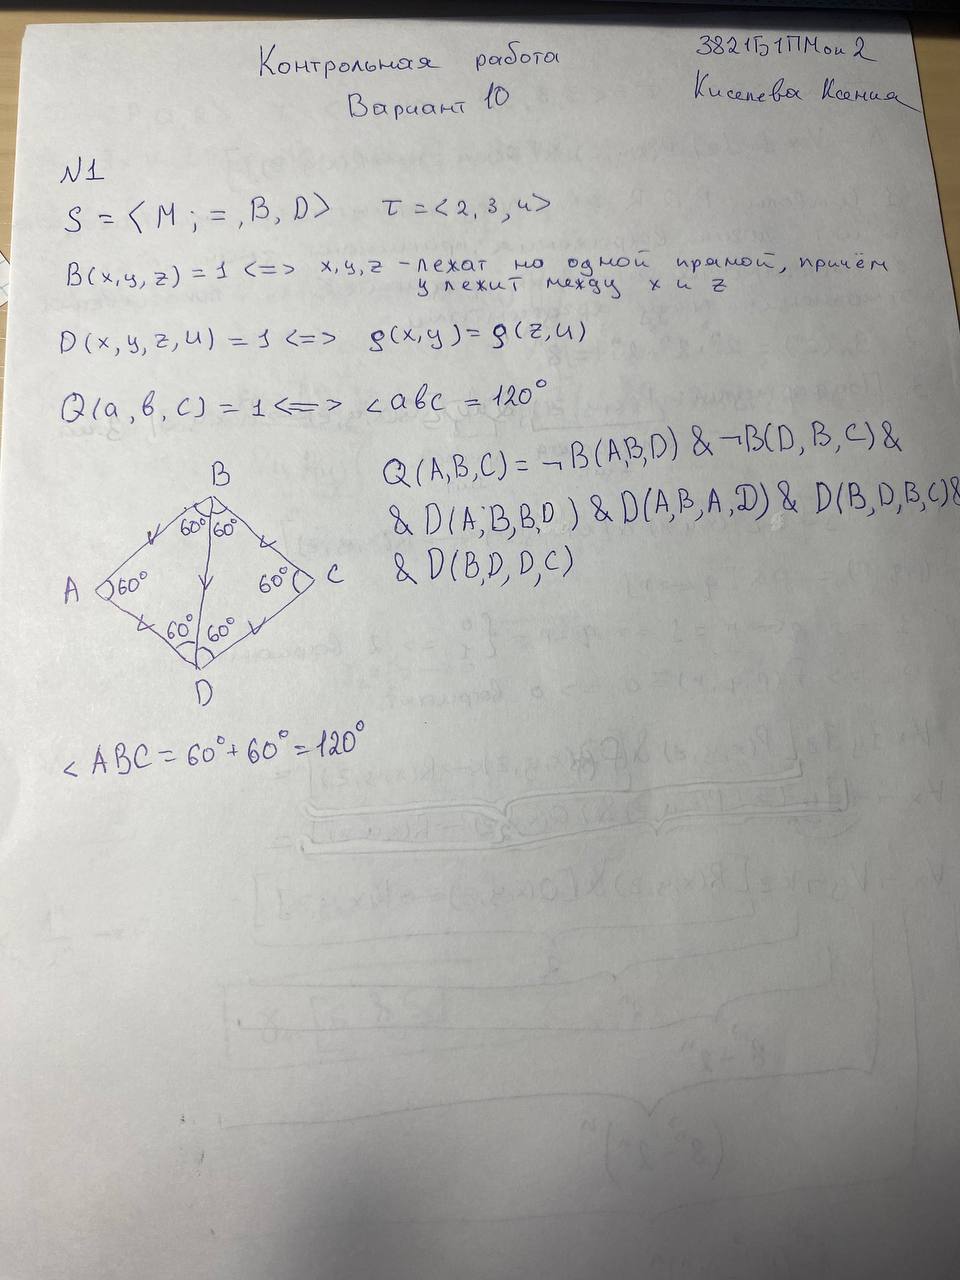 Контрольная работа
3821Б1ПМои2
Вариант 10
Киселева Ксения
N1
S = <M ; = , B, D> τ = <2, 3, 4>
B(x,y,z) = 1 <=> x,y,z - лежат на одной прямой, причём
y лежит между x и z
D(x,y,z,u) = 1 <=> ρ(x,y) = ρ(z,u)
Q(a,b,c) = 1 <=> ∠abc = 120°
Q(A,B,C) = ¬B(A,B,D) & ¬B(D,B,C) &
& D(A,B,B,D) & D(A,B,A,D) & D(B,D,B,C) &
& D(B,D,D,C)
B
60° 60°
A 60°
60° C
60° 60°
D
∠ABC = 60° + 60° = 120°